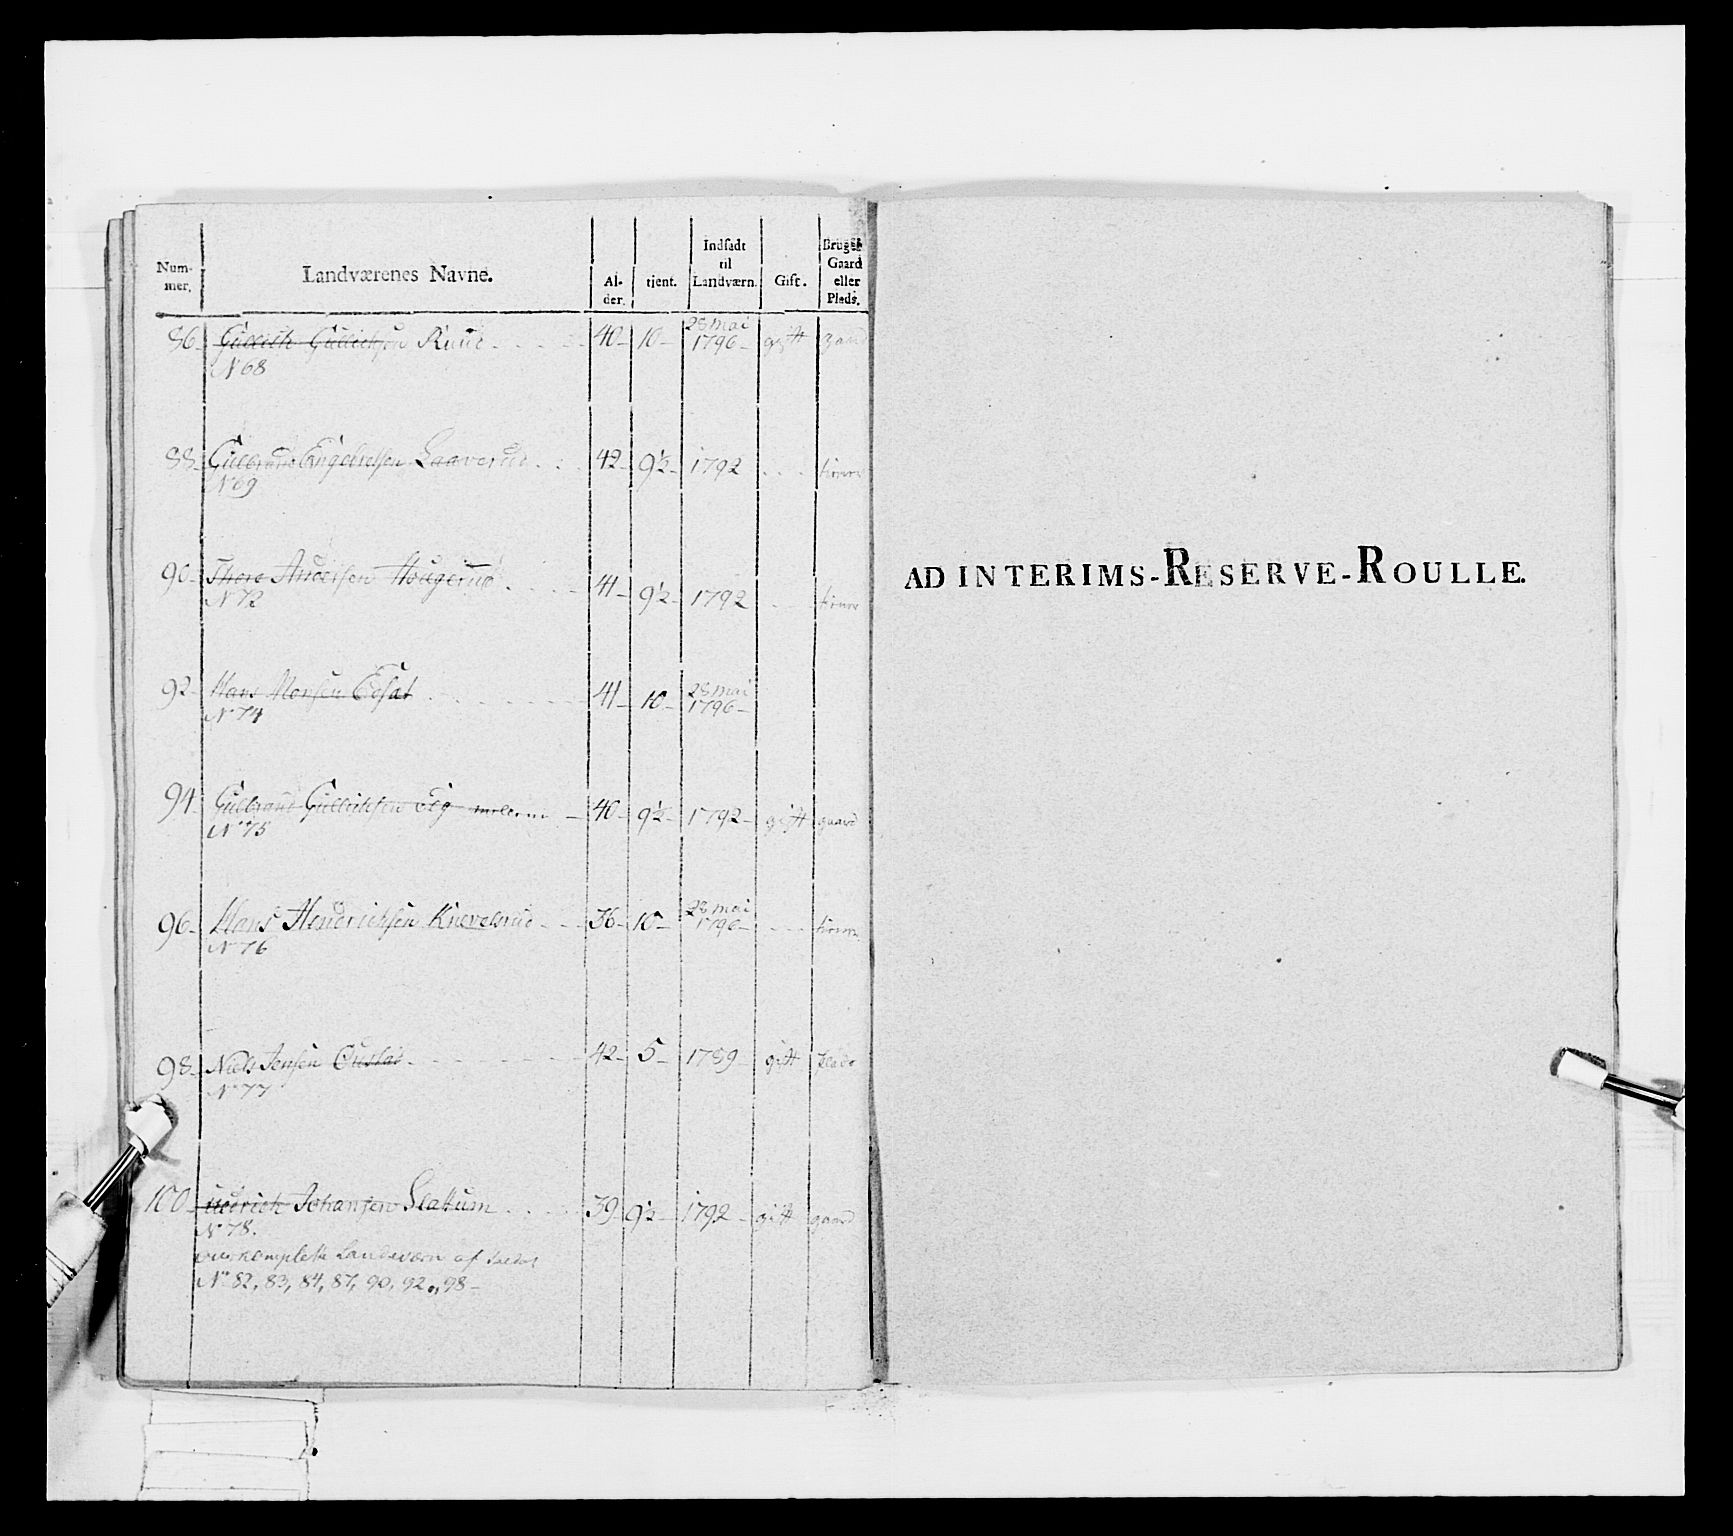 Num-
mer.
Landværenes Navne.
Al-
der.
tjent.
Indsadt
til
Landværn.
Gift.
Bruger
Gaard
eller
Plads.
86 Gullich Gullichsen Ruud 40 10 28 Mai 1796 gift gaard
N 68
88 Gulbrand Engebretsen Laaverud 42 9½ 1792
N 69
90 Thore Andersen Hougerud 41 9½ 1792
N 72
92 Hans Monsen 41 10 28 Mai 1796
N 74
94 Gulbrand Gullichsen 40 9½ 1792 gift gaard
N 75
96 Hans Hendrichsen Knevelsrud 36 10 28 Mai 1796
N 76
98 Niels Jensen 42 5 1789 gift plads
N 77
100 Johansen Slattum 39 9½ 1792 gift gaard
N 78.
overkomplette Landeværn af
No 82, 83, 84, 87, 90, 92 og 98
AD INTERIMS-RESERVE-ROULLE.